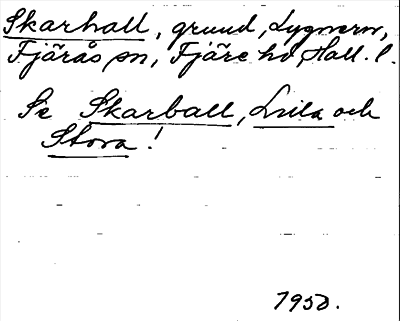 Skarhall, grund, Lygnern,
Fjärås sn, Fjäre hd, Hall. l.
Se Skarball, Lilla och
Stora!
1950.